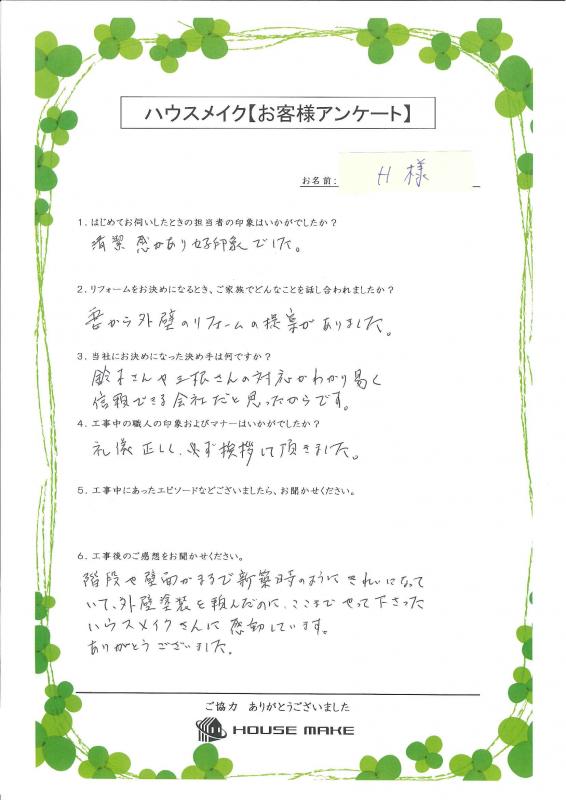 ハウスメイク【お客様アンケート】
お名前: H 様
1. はじめてお伺いしたときの担当者の印象はいかがでしたか?
清潔感があり好印象でした。
2. リフォームをお決めになるとき、ご家族でどんなことを話し合われましたか?
妻から外壁のリフォームの提案がありました。
3. 当社にお決めになった決め手は何ですか?
鈴木さんや三根さんの対応がわかり易く
信頼できる会社だと思ったからです。
4. 工事中の職人の印象およびマナーはいかがでしたか?
礼儀正しく、必ず挨拶して頂きました。
5. 工事中にあったエピソードなどございましたら、お聞かせください。
6. 工事後のご感想をお聞かせください。
階段や壁面がまるで新築時のようにきれいになって
いて、外壁塗装を頼んだのに、ここまでやって下さった
ハウスメイクさんに感動しています。
ありがとうございました。
ご協力 ありがとうございました
HOUSE MAKE